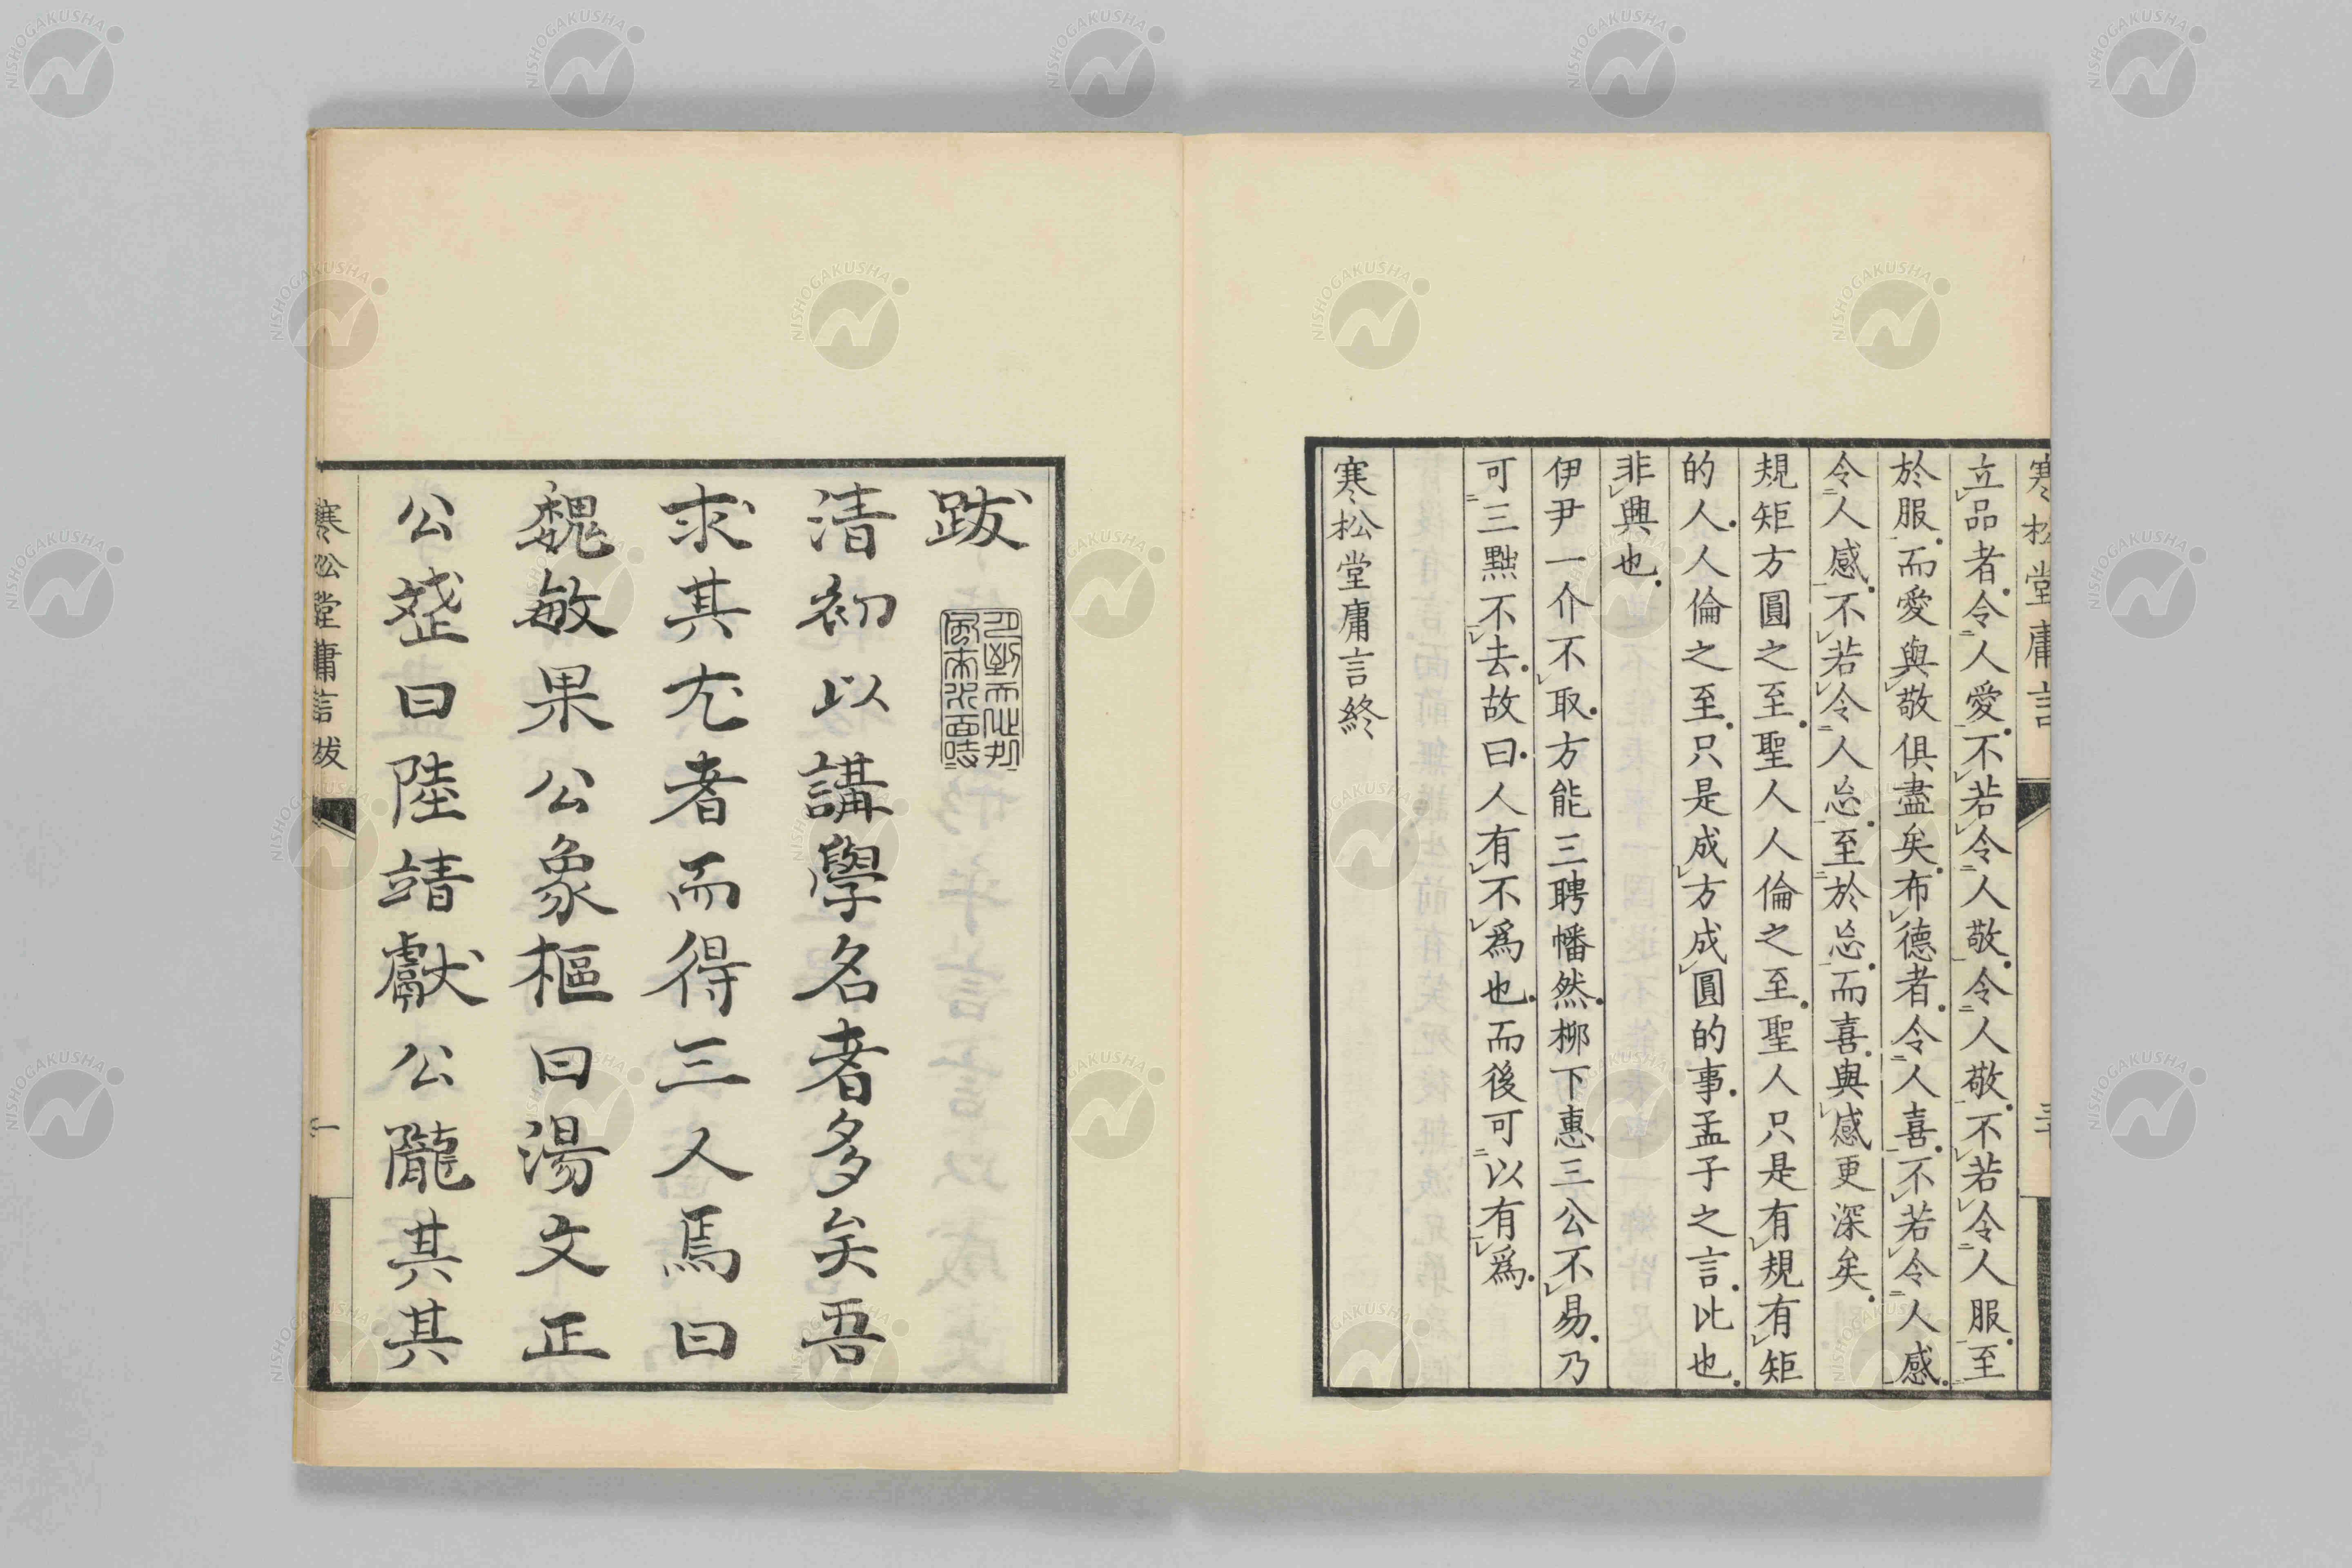 寒松堂庸言
立品者令人愛不若令人敬令人敬不若令人服至
於服而愛與敬俱盡矣布德者令人喜不若令人感
令人感不若令人忘至於忘而喜與感更深矣
規矩方圓之至聖人人倫之至聖人只是有規有矩
的人人倫之至只是成方成圓的事孟子之言比也
非興也
伊尹一介不取方能三聘幡然柳下惠三公不易乃
可三黜不去故曰人有不爲也而後可以有爲
寒松堂庸言終
跋
清初以講學名者多矣吾
求其尤者而得三人焉曰
魏敏果公象樞曰湯文正
公斌曰陸靖獻公隴其其
寒松堂庸言跋
一
NISHOGAKUSHA